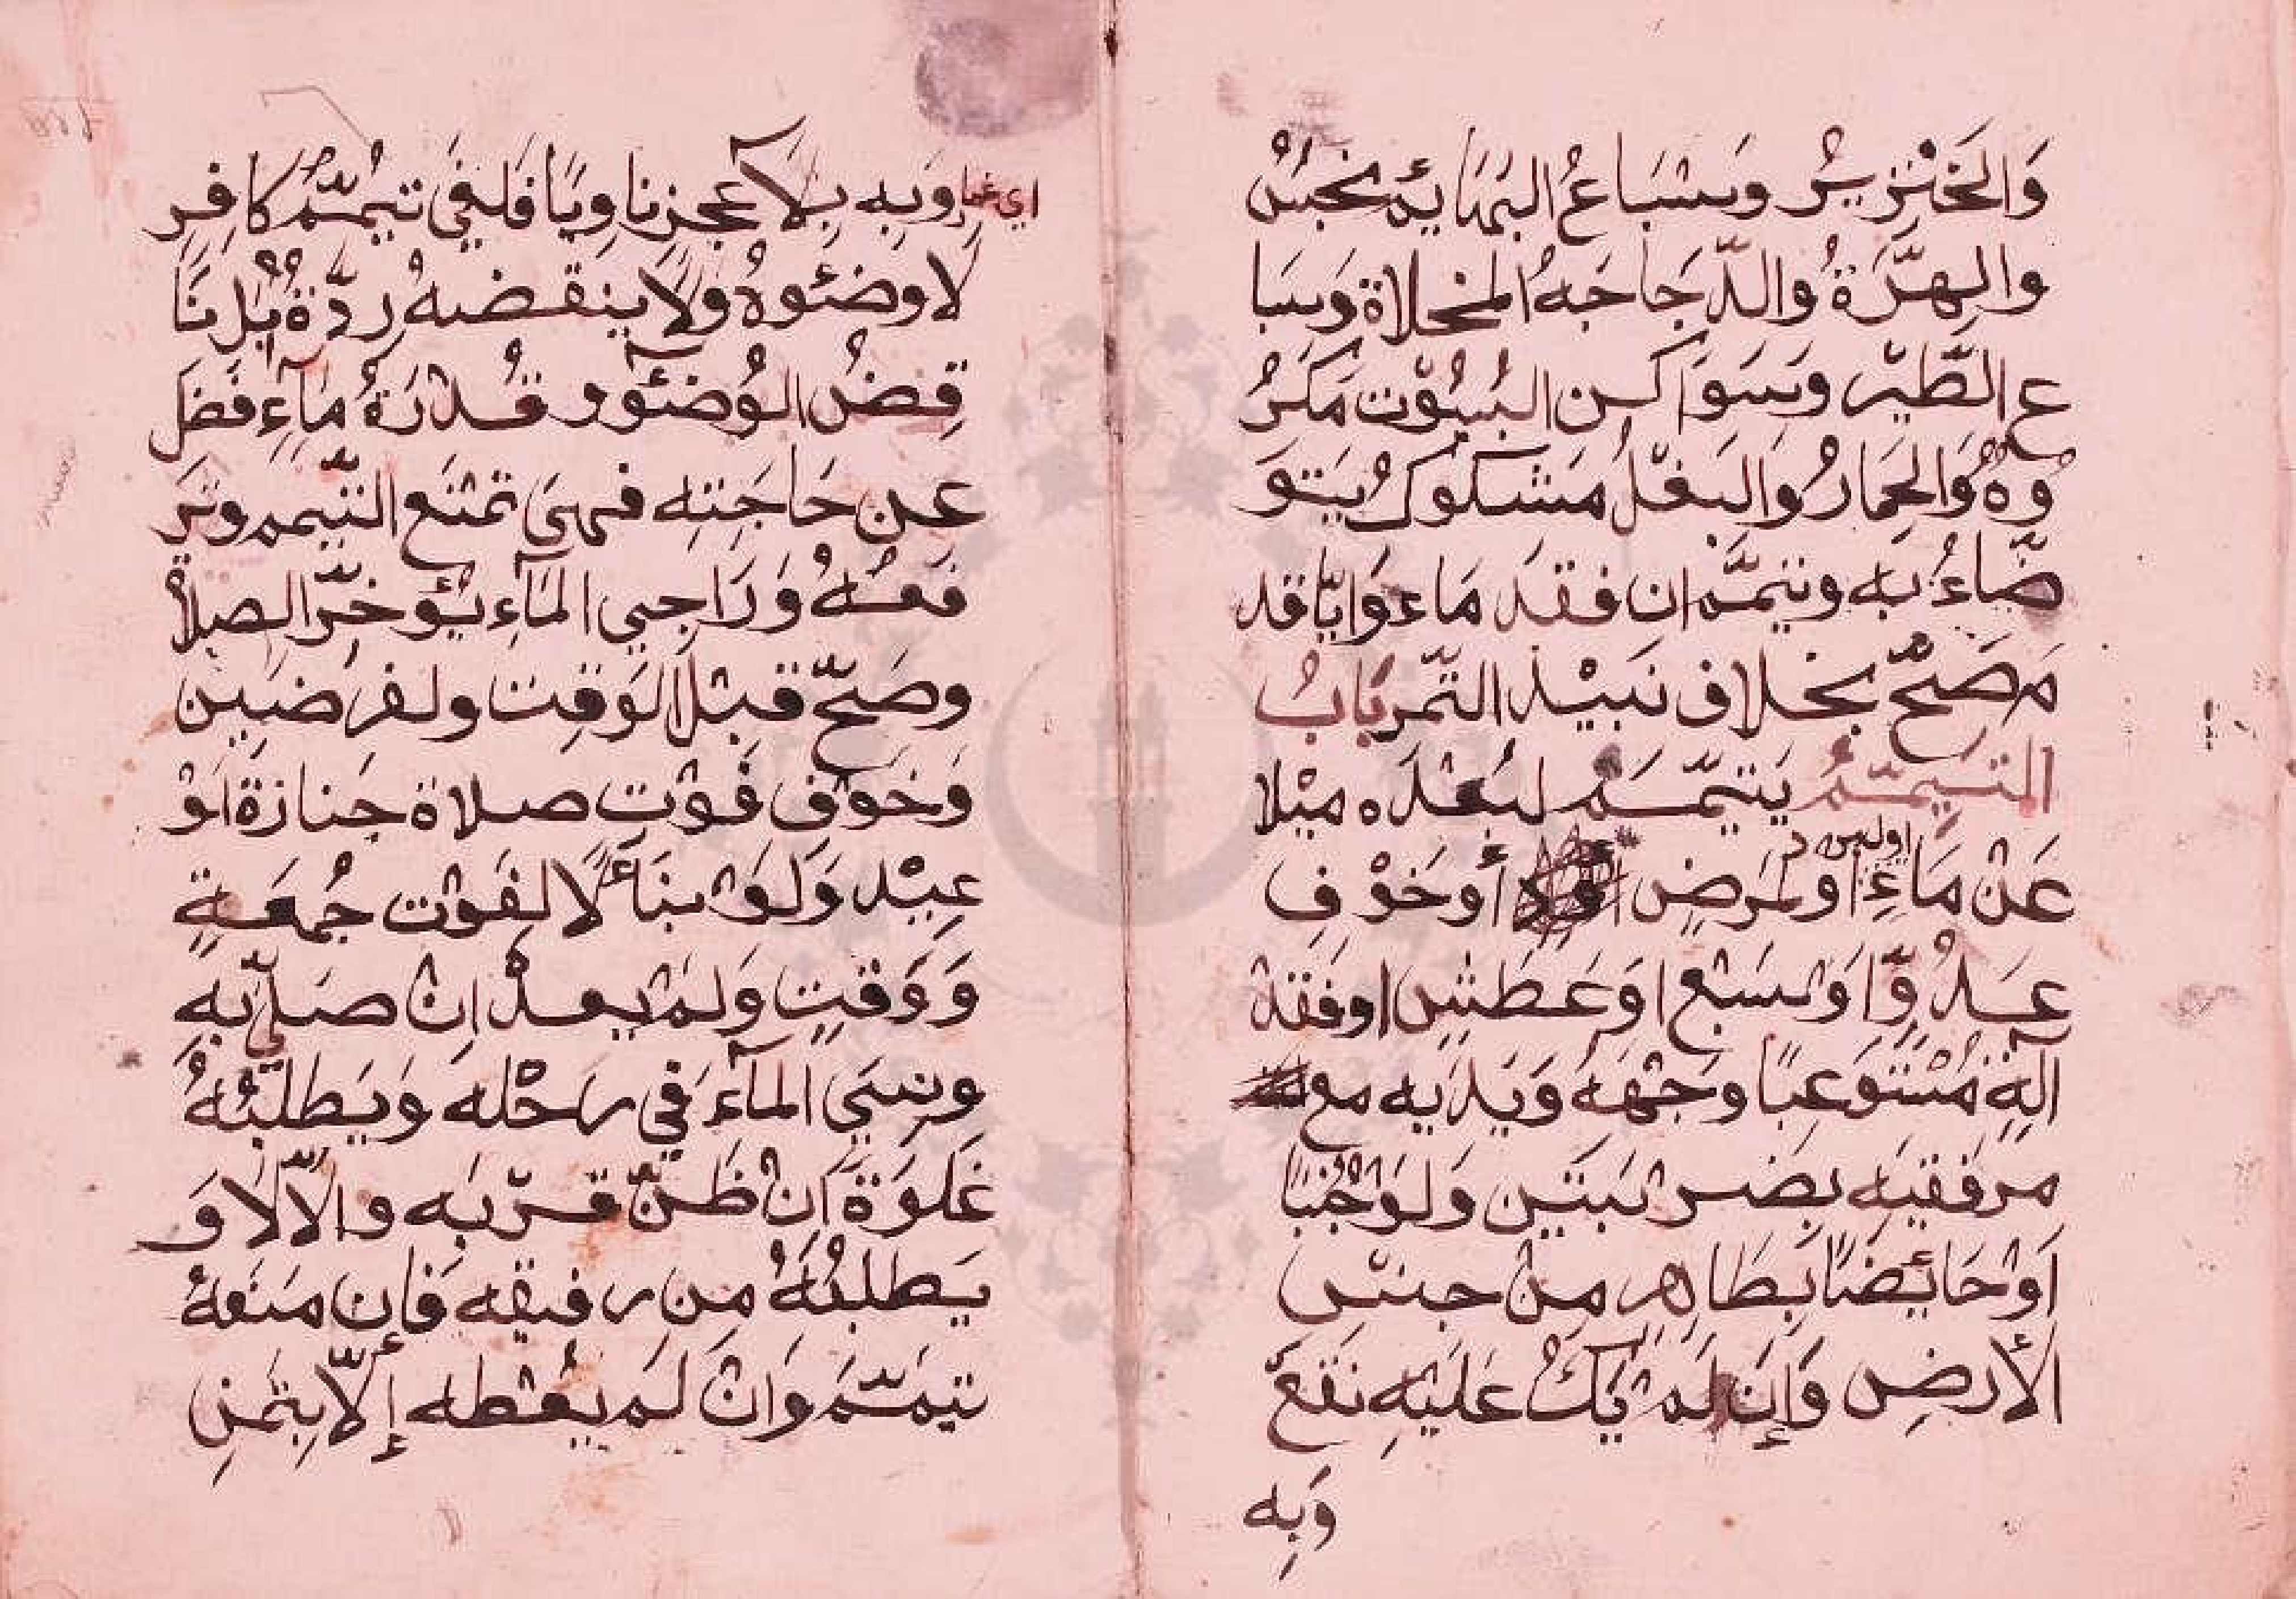 وَالخَنْزِيْرِ وَسِبَاعُ البَهَايُمِ نَجِسٌ
والهِرَّةُ والدَّجَاجَةُ المخلاة وَسِبَا
عِ الطَّيْرِ وَسَوَاكِن البُيُوْت مَكْرُ
وْهٌ وَالحِمَارُ وَالبَغْلُ مَشْكُوكٌ يَتَوَ
ضَّاءُ به ويتيمَّم ان فقدَ مَاء وَايًّا قد
مَ صَحَّ بخلاف نَبيْذ التَّمْر بَابُ
التيمّمُ يَتيمّمُ لبُعْدَه ميْلا
عَنْ مَاءٍ اولمرَضٍ أو خَوْفِ
اولبرد
عَدُوٍّ اَوْ سَبْع اوَ عَطَشٍ اوفقدْ
آلةٍ مُسْتَوعِبًا وَجْهَهُ وَيَدَيه مع
مرفَقيَه بضَرْبَتَين وَلَوْ جُنُبًا
اَوْ حَائِضًا بِطَاهِرٍ مِنْ جنْسِ
الأرضِ وَإِن لَمْ يَكُ عَليْهِ نَقعٌ
وَبِه
اي غبار
وَبِه بِلاَ عجزنَاوِيًا فَلغِيَ تيمّمُ كافِرٍ
لا وضئوهُ ولا ينقضه رِدّةٌ بَلْ نَا
قِضُ الوُضئوْ وقُدْرَةُ مَآءٍ فَضَلَ
عن حَاجَتِه فهىَ تمنَع التّيمم وتَرْ
فَعُهُ وَرَاجِي المَآءِ يُؤخِّرُ الصلاة
وصَحّ قبْلَ الوَقت ولفرضَين
وَخوْف فَوْتِ صلاة جنازة اَوْ
عيْد وَلَوْ بنَاءً لا لفَوْت جُمعَةٍ
وَوَقتٍ وَلمْ يعدْ اِنْ صَلّي بِهِ
ونسَيَ المآءَ في رَحْله وَيَطلبُهُ
غَلوَةً اَنْ ظَنّ قرْبَه والاّ لا وَ
يَطلبُهُ من رفيقه فَإن منَعَهُ
تيمّمَ وَانْ لَم يُعْطه إلاّ بثمنِ